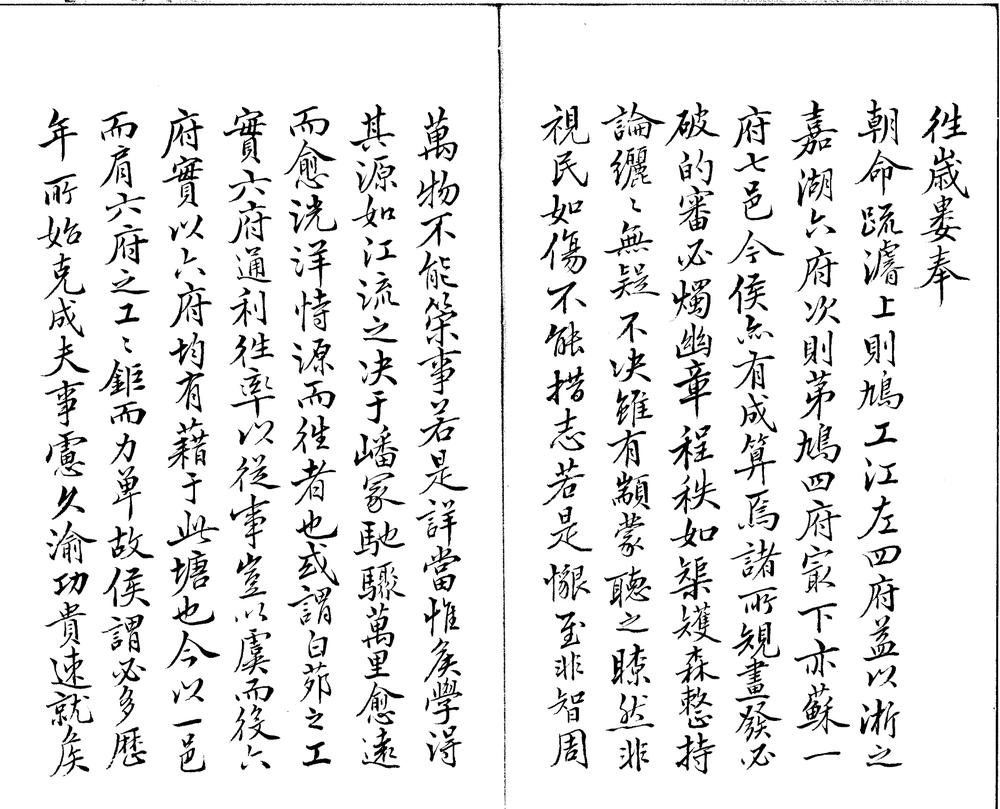 徃歲婁奉
朝命䟽濬上則鳩工江左四府益以淅之
嘉湖六府次則苐鳩四府㝡下亦蘇一
府七邑今侯亦有成算焉諸所規畫發必
破的審必燭幽章程秩如榘矱森整持
論纚〻無疑不决雖有顓蒙聽之瞭然非
視民如傷不能措志若是懇至非智周
萬物不能策事若是詳當惟矦學得
其源如江流之决于嶓冢馳驟萬里愈遠
而愈洸洋恃源而徃者也或謂白茆之工
實六府通利徃率以從事豈以虞而役六
府實以六府均有藉于此塘也今以一邑
而肩六府之工〻鉅而力單故侯謂必多歷
年所始克成夫事慮久渝功貴速就矦